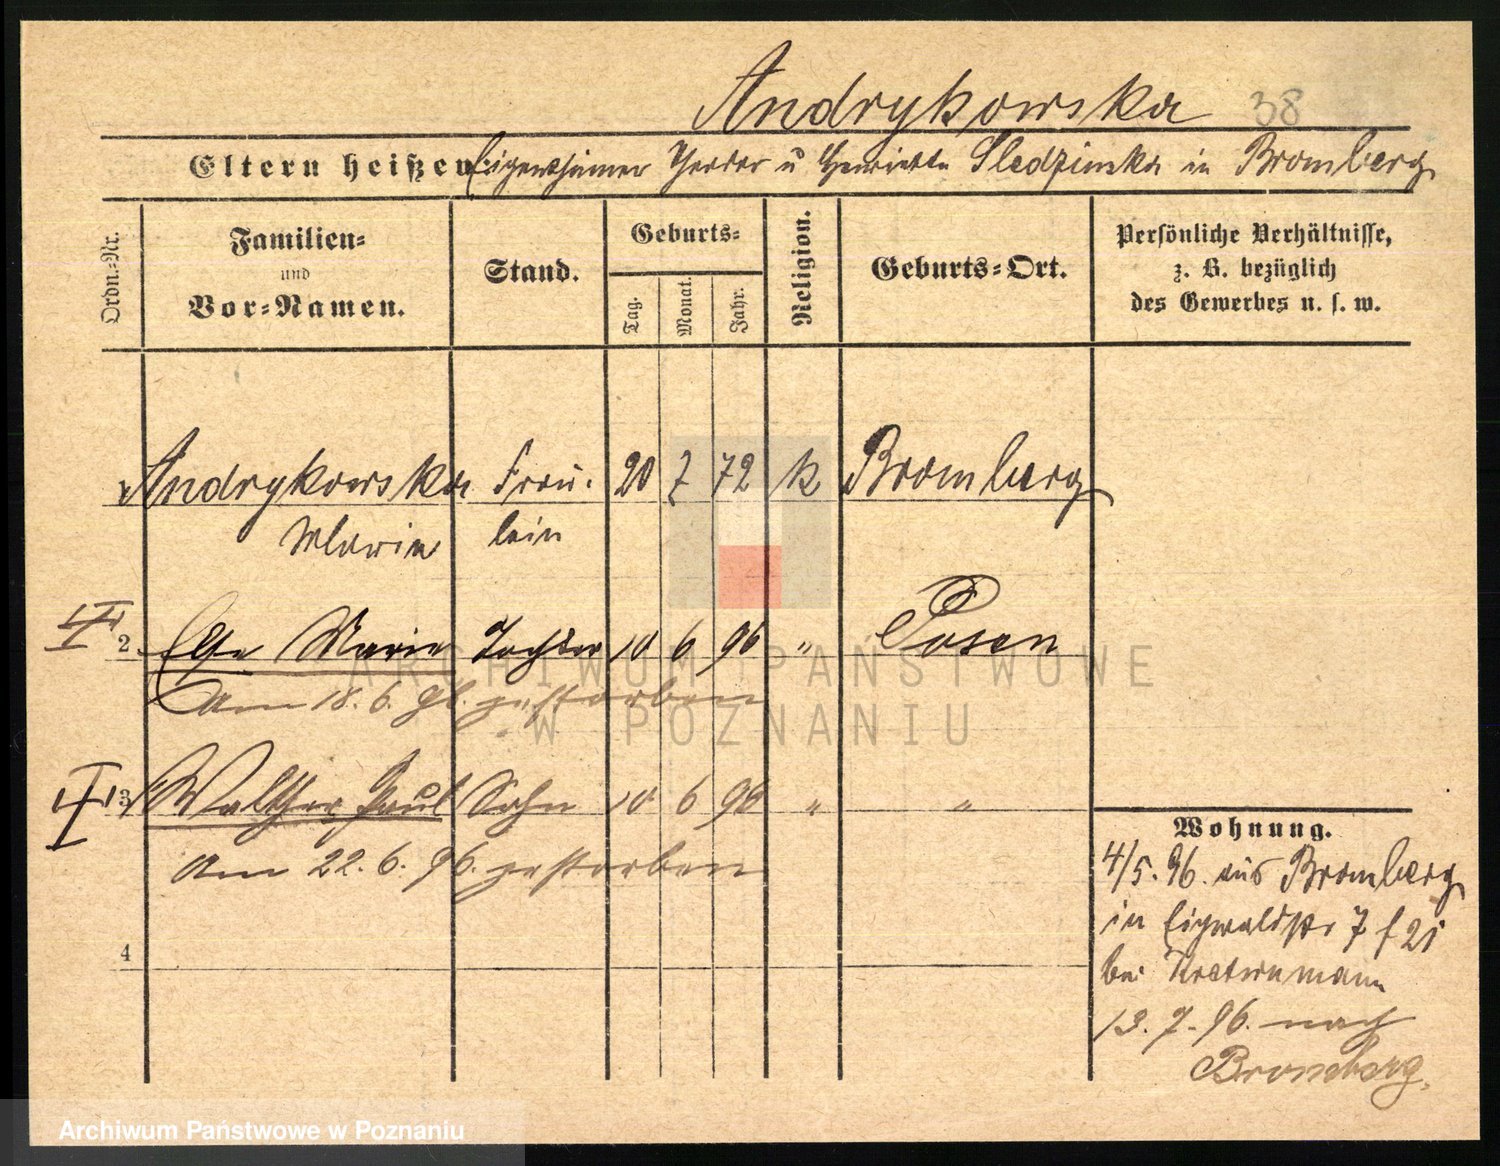 Andrykowska 38
Eltern heißen: Eigenthümer Theodor u Henriette Sledzinska in Bromberg
Ordn.-Nr.
Familien-
und
Vor-Namen.
Stand.
Geburts-
Tag.
Monat.
Jahr.
Religion.
Geburts-Ort.
Persönliche Verhältnisse,
z. B. bezüglich
des Gewerbes u. s. w.
Andrykowska Fräu- 20 7 72 k Bromberg
Maria lein
2 Else Marie Tochter 10 6 96 " Posen
Am 18. 6. 96. gestorben
3 Walther Paul Sohn 10 6 96 " "
Am 22. 6. 96. gestorben
4
Wohnung.
4/5. 96. aus Bromberg
in Eichwaldstr 7
bei
13. 7. 96. nach
Bromberg.
ARCHIWUM PAŃSTWOWE
W POZNANIU
Archiwum Państwowe w Poznaniu